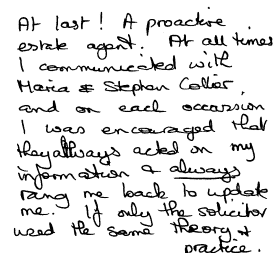 At last! A proactive
estate agent. At all times
I communicated with
Maria & Stephen Collier,
and on each occassion
I was encouraged that
they always acted on my
information & always
rang me back to update
me. If only the solicitor
used the same theory &
practice.